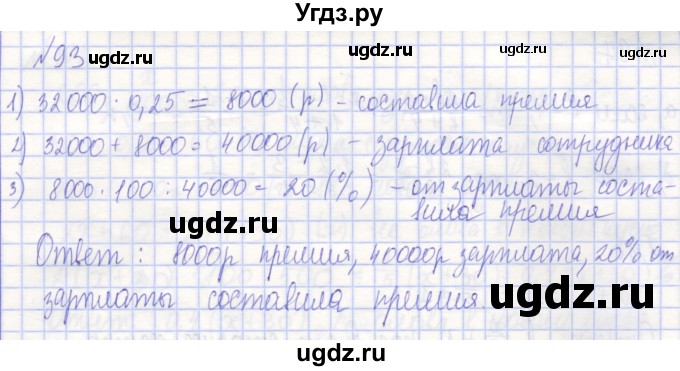 Угдз.ру
№93 ugdz.ru ugdz.ru
1) 32000 · 0,25 = 8000 (р) – составила премия
ugdz.ru
2) 32000 + 8000 = 40000 (р) – зарплата сотрудника
ugdz.ru ugdz.ru
3) 8000 · 100 : 40000 = 20 (%) – от зарплаты соста-
ugdz.ru вила премия
Ответ : 8000р премия, 40000р зарплата, 20% от
ugdz.ru
зарплаты составила премия.
ugdz.ru
ugdz.ru ugdz.ru
ugdz.ru